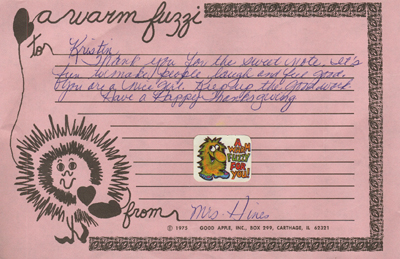 a warm fuzzi
for Kristin
Thank you for the sweet note. It's
fun to make people laugh and feel good.
You are a nice girl. Keep up the good work.
Have a Happy Thanksgiving
A
WARM
FUZZY
FOR
YOU!
from Mrs. Hines
© 1975 GOOD APPLE, INC., BOX 299, CARTHAGE, IL 62321